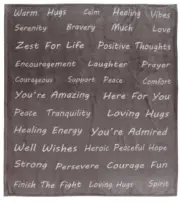 Warm Hugs Calm Healing Vibes
Serenity Bravery Much Love
Zest For Life Positive Thoughts
Encouragement Laughter Prayer
Courageous Support Peace Comfort
You're Amazing Here For You
Peace Tranquility Loving Hugs
Healing Energy You're Admired
Well Wishes Heroic Peaceful Hope
Strong Persevere Courage Fun
Finish The Fight Loving Hugs Spirit